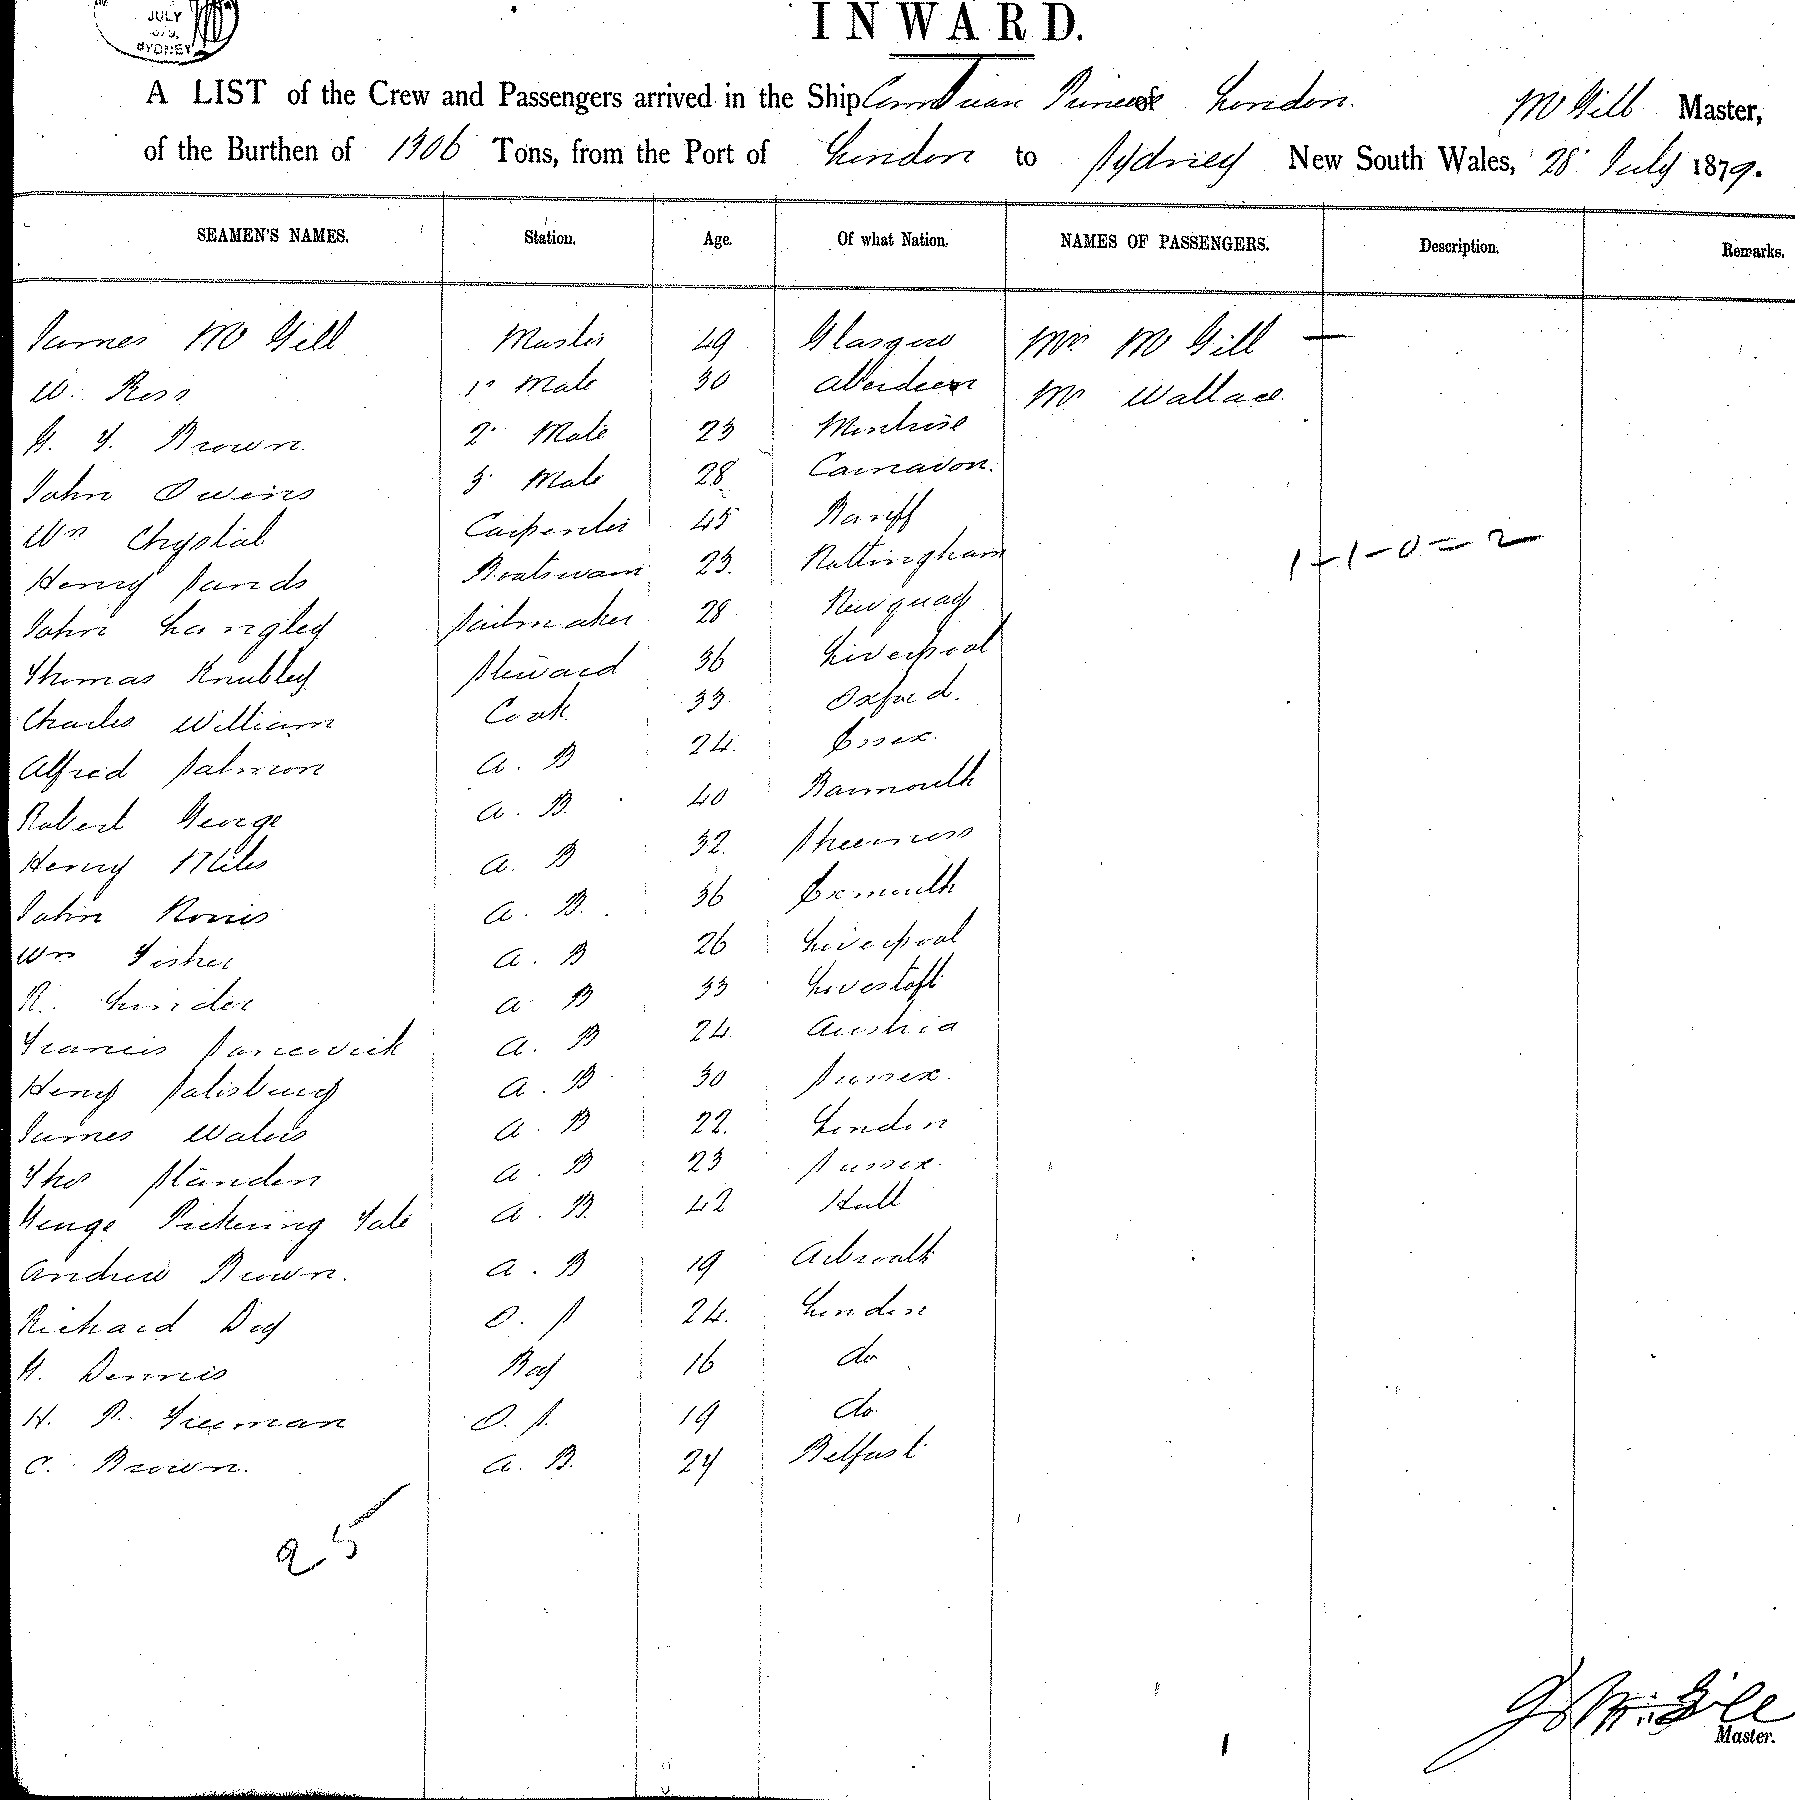 JULY
SYDNEY
INWARD.
A LIST of the Crew and Passengers arrived in the Ship London. McGill Master,
of the Burthen of 1306 Tons, from the Port of London to Sydney New South Wales, 28 July 1879.
SEAMEN'S NAMES. Station. Age. Of what Nation. NAMES OF PASSENGERS. Description. Remarks.
James McGill Master 49 Glasgow Mrs McGill —
W. Ross 1st Mate 30 Aberdeen Mr Wallace
Brown 2 Mate 23 Montrose
John Owens 3 Mate 28 Carnavon.
Wm Chrystal Carpenter 45 Banff
1-1-0=2
Henry Sands Boatswain 23. Nottingham
John Langley Sailmaker 28 Newquay
Thomas Knubley Steward 36 Liverpool
Charles William Cook 33. Oxford.
Alfred Salmon A. B 24. Essex.
Robert George A. B. 40 Barmouth
Henry Miles A. B 32. Sheerness
John Norris A. B. 36 Exmouth
Wm Fisher A. B 26 Liverpool
R. Linder A B 33 Lowestoft
Francis A. B 24. Austria
Henry Salisbury A. B 30 Sussex.
James Waters A. B 22. London
Thos Standen A. B 23 Sussex.
George Pickering Tate A. B. 42 Hull
Andrew Brown. A. B 19 Arbroath
Richard Day O. S 24. London
G. Dennis Boy 16 do
H. R. Freeman O. S. 19 do.
C. Brown. A. B. 24 Belfast
25
Js McGill
Master.